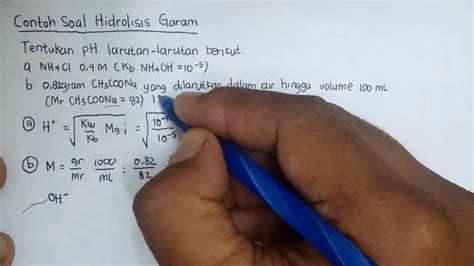 Contoh Soal Hidrolisis Garam
Tentukan pH larutan-larutan berikut:
a. NH4Cl 0,4 M (Kb NH4OH = 10⁻⁵)
b. 0,82 gram CH3COONa yang dilarutkan dalam air hingga volume 100 mL
(Mr CH3COONa = 82)
(a) H⁺ = √(Kw/Kb . Mg.j) = √(10⁻/10⁻⁵
(b) M = gr/mr . 1000/mL = 0,82/82
OH⁻